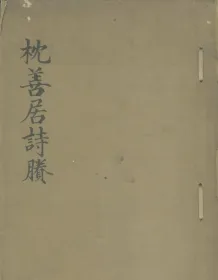 枕善居詩賸